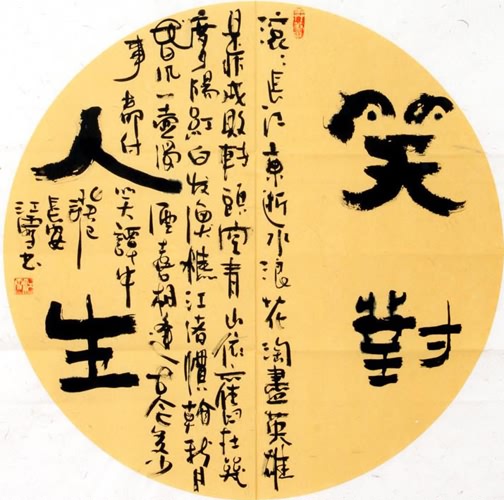 笑對
人生
滚〻長江東逝水浪花淘盡英雄
是非成敗轉頭空青山依舊在幾
度夕陽紅白发漁樵江渚慣看秋月
春风一壺濁酒喜相逢古今多少
事都付笑談中
長安
江雪书